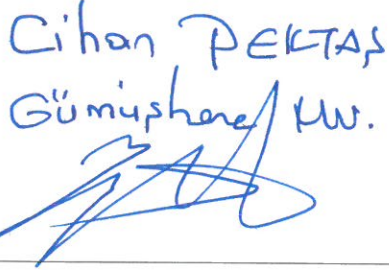 Cihan PEKTAŞ
Gümüşhane MV.